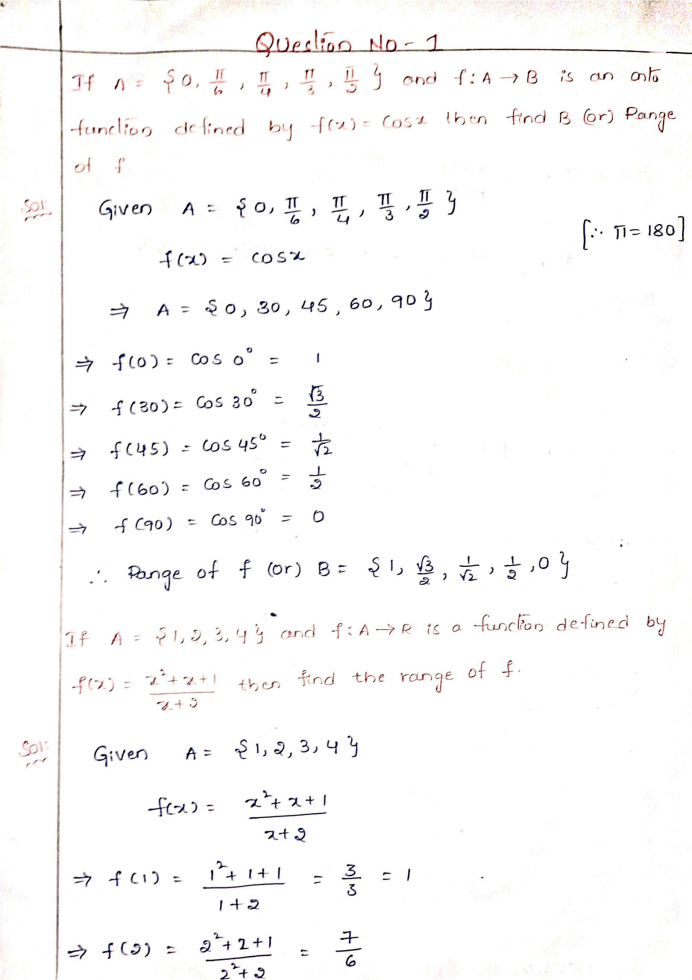 Question No - 1
If A = {0, π/6, π/4, π/3, π/2} and f: A → B is an onto
function defined by f(x) = Cosx then find B (or) Range
of f
Sol: Given A = {0, π/6, π/4, π/3, π/2}
[∵ π = 180]
f(x) = cosx
⇒ A = {0, 30, 45, 60, 90}
⇒ f(0) = cos 0° = 1
⇒ f(30) = Cos 30° = √3/2
⇒ f(45) = Cos 45° = 1/√2
⇒ f(60) = Cos 60° = 1/2
⇒ f(90) = Cos 90° = 0
∴ Range of f (or) B = {1, √3/2, 1/√2, 1/2, 0}
If A = {1, 2, 3, 4} and f: A → R is a function defined by
f(x) = (x²+x+1)/(x+2) then find the range of f.
Sol: Given A = {1, 2, 3, 4}
f(x) = (x²+x+1)/(x+2)
⇒ f(1) = (1²+1+1)/(1+2) = 3/3 = 1
⇒ f(2) = (2²+2+1)/(2²+2) = 7/6